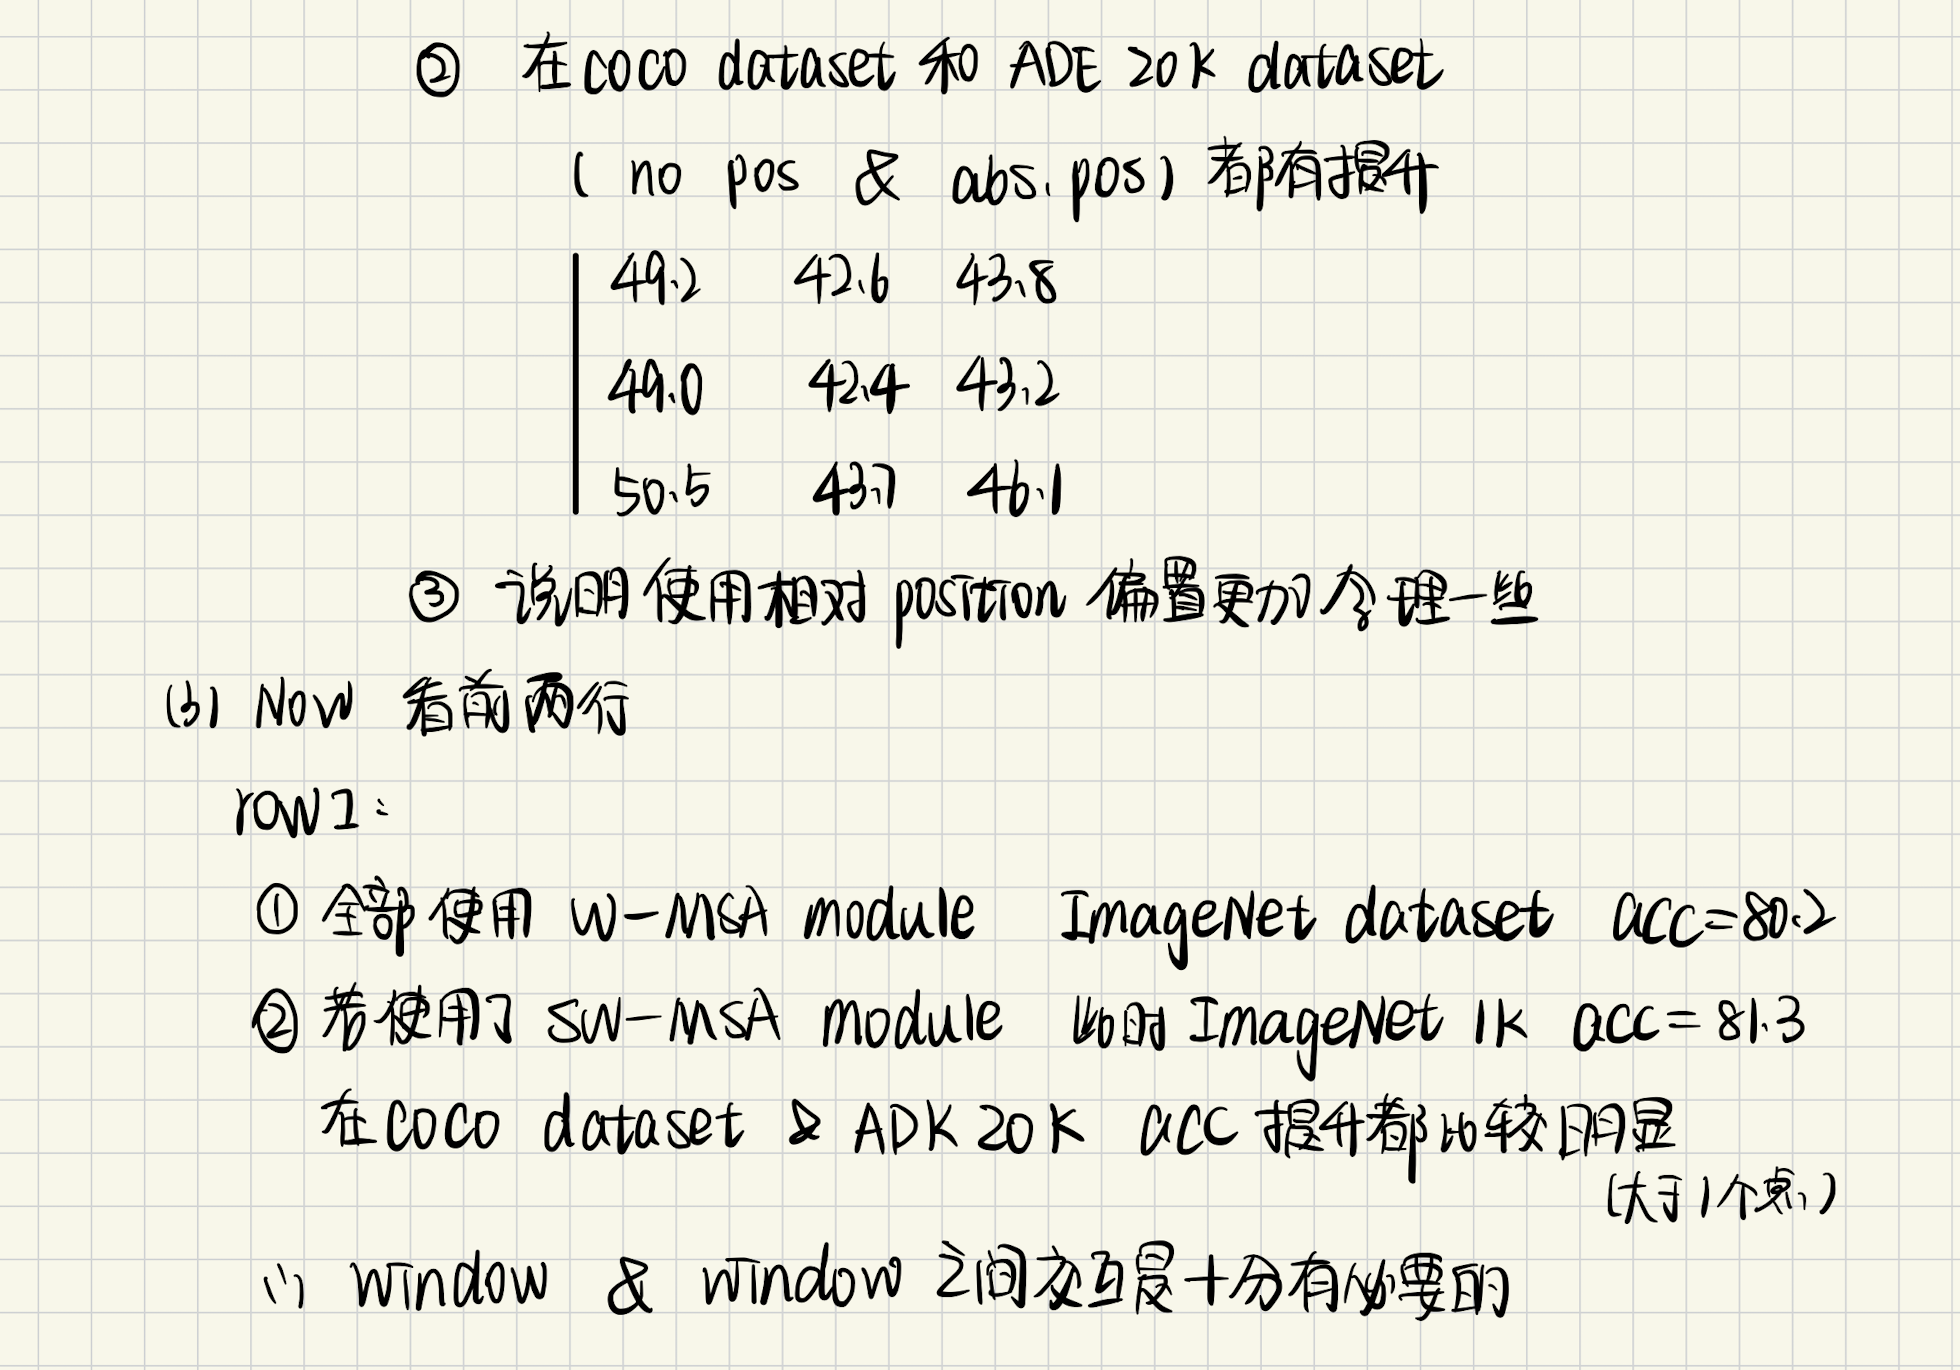 ② 在COCO dataset 和 ADE 20K dataset
( no pos & abs. pos) 都有提升
49.2 42.6 43.8
49.0 42.4 43.2
50.5 43.7 46.1
③ 说明使用相对 position 偏置更加合理一些
(3) Now 看前两行
row1:
① 全部使用 W-MSA module ImageNet dataset acc=80.2
② 若使用了 SW-MSA module 此时 ImageNet 1K acc=81.3
在COCO dataset & ADK 20K acc 提升都比较明显
(大于1个点)
∴ window & window 之间交互是十分有必要的